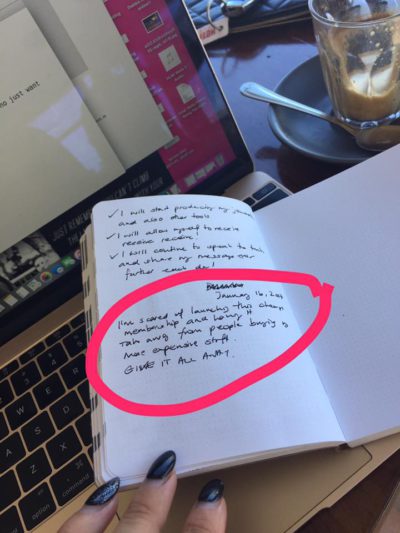 no just want
CAN'T CLIMB
WITH YOUR
JUST
THE
✓ I will start producing my journal
and also other tools
✓ I will allow myself to receive
receive receive!
✓ I will continue to speak to
and share my message even
further each day!
January 16,
I'm scared of launching this cheap
membership and having it
take away from people buying my
more expensive stuff.
GIVE IT ALL AWAY.
command
option